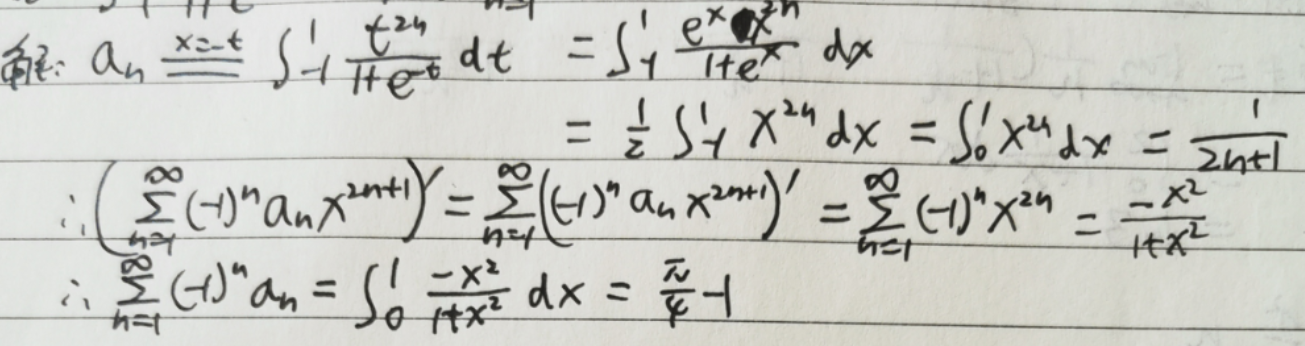 解: aₙ x=-t ∫₋₁¹ t²ⁿ/(1+e⁻ᵗ) dt = ∫₋₁¹ eˣx²ⁿ/(1+eˣ) dx
= 1/2 ∫₋₁¹ x²ⁿ dx = ∫₀¹ x²ⁿ dx = 1/(2n+1)
∴ (∑ₙ₌₁^∞ (-1)ⁿ aₙ x²ⁿ⁺¹)′ = ∑ₙ₌₁^∞ ((-1)ⁿ aₙ x²ⁿ⁺¹)′ = ∑ₙ₌₁^∞ (-1)ⁿ x²ⁿ = -x²/(1+x²)
∴ ∑ₙ₌₁^∞ (-1)ⁿ aₙ = ∫₀¹ -x²/(1+x²) dx = π/4 -1